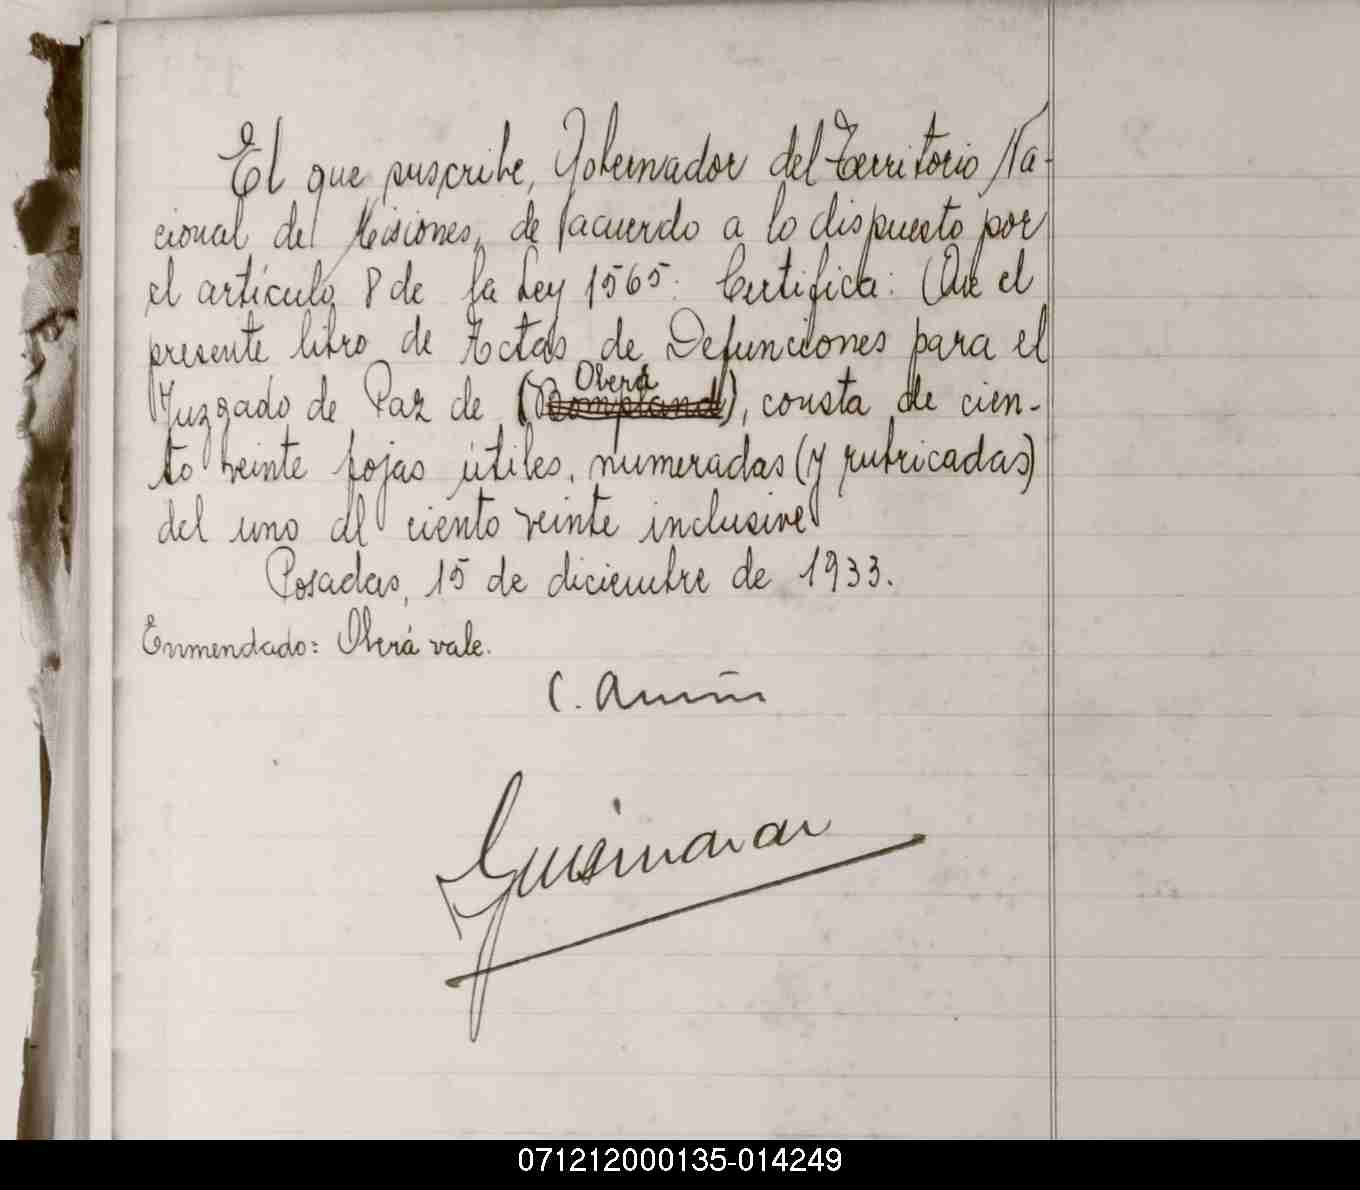 El que suscribe, Gobernador del Territorio Na-
cional de Misiones, de acuerdo a lo dispuesto por
el artículo 8 de la Ley 1565: Certifica: Que el
presente libro de Actas de Defunciones para el
Oberá
Juzgado de Paz de (Bompland), consta de cien-
to veinte fojas útiles, numeradas (y rubricadas)
del uno al ciento veinte inclusive
Posadas, 15 de diciembre de 1933.
Enmendado: Oberá vale.
C.
071212000135-014249